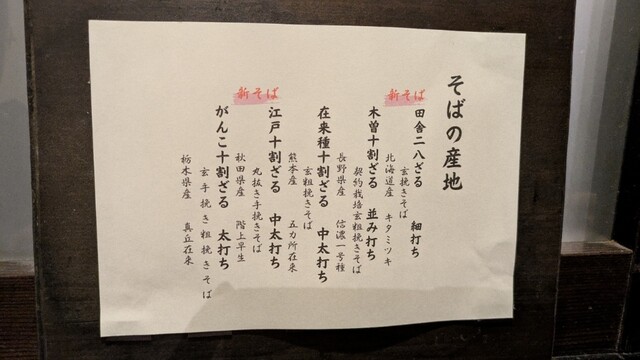 そばの産地
新そば
田舎二八ざる 細打ち
玄挽きそば
北海道産 キタミツキ
木曽十割ざる 並み打ち
契約栽培玄粗挽きそば
長野県産 信濃一号種
在来種十割ざる 中太打ち
玄粗挽きそば
熊本産 五カ所在来
新そば
江戸十割ざる 中太打ち
丸抜き手挽きそば
秋田県産 階上早生
がんこ十割ざる 太打ち
玄手挽き粗挽きそば
栃木県産 真立在来